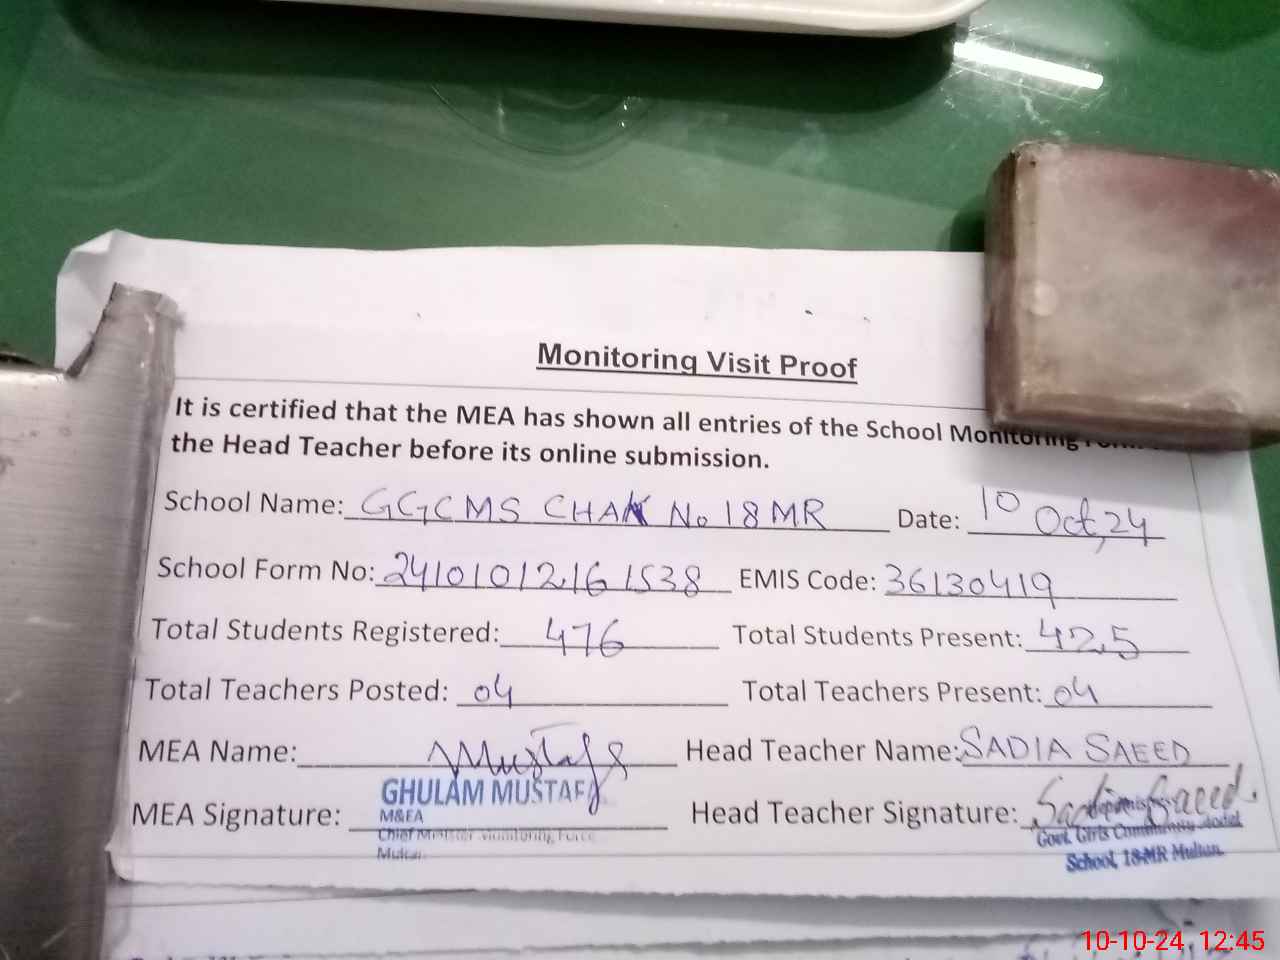 Monitoring Visit Proof
It is certified that the MEA has shown all entries of the School Monitoring Form
the Head Teacher before its online submission.
School Name: GGCMS CHAK No 18 MR Date: 10 Oct, 24
School Form No: 24101012161538 EMIS Code: 36130419
Total Students Registered: 476 Total Students Present: 425
Total Teachers Posted: 04 Total Teachers Present: 04
MEA Name: Mustafa Head Teacher Name: SADIA SAEED
MEA Signature: GHULAM MUSTAFA Head Teacher Signature: Sadia Saeed.
M&EA
Chief Minister Monitoring Force
Multan
Govt. Girls Community Model
School, 18-MR Multan.
10-10-24 12:45